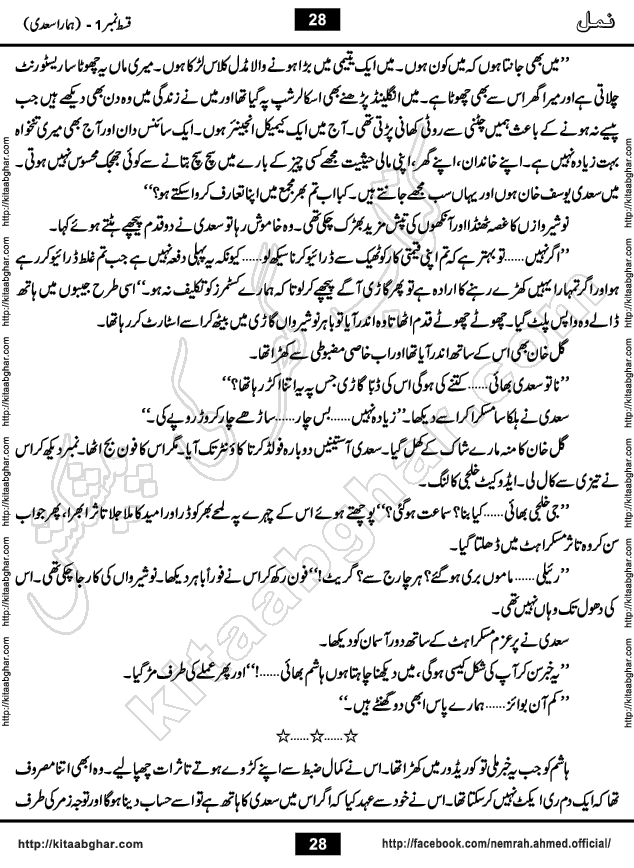 نمل 28 قسط نمبر 1 - (ہمارا سعدی)
’’میں بھی جانتا ہوں کہ میں کون ہوں۔ میں ایک یتیمی میں بڑا ہونے والا مڈل کلاس لڑکا ہوں۔ میری ماں یہ چھوٹا سا ریسٹورنٹ
چلاتی ہے اور میرا گھر اس سے بھی چھوٹا ہے۔ میں انگلینڈ پڑھنے بھی اسکالرشپ پہ گیا تھا اور میں نے زندگی میں وہ دن بھی دیکھے ہیں جب
پیسے نہ ہونے کے باعث ہمیں چٹنی سے روٹی کھانی پڑتی تھی۔ آج میں ایک کیمیکل انجینئر ہوں۔ ایک سائنس دان اور آج بھی میری تنخواہ
بہت زیادہ نہیں ہے۔ اپنے خاندان، اپنے گھر، اپنی مالی حیثیت مجھے کسی چیز کے بارے میں سچ سچ بتانے سے کوئی جھجک محسوس نہیں ہوتی۔
میں سعدی یوسف خان ہوں اور یہاں سب مجھے جانتے ہیں۔ کیا اب تم بھر مجمع میں اپنا تعارف کروا سکتے ہو؟‘‘
نوشیرواں کا غصہ ٹھنڈا اور آنکھوں کی تپش مزید بھڑک چکی تھی۔ وہ خاموش رہا تو سعدی نے دو قدم پیچھے ہٹتے ہوئے کہا۔
’’اگر نہیں...... تو بہتر ہے کہ تم اپنی قیمتی کار کو ٹھیک سے ڈرائیو کرنا سیکھ لو...... کیونکہ یہ پہلی دفعہ نہیں ہے جب تم غلط ڈرائیو کر رہے
ہو اور اگر تمہارا یہیں کھڑے رہنے کا ارادہ ہے تو پھر گاڑی آگے پیچھے کر لو تا کہ ہمارے کسٹمرز کو تکلیف نہ ہو۔‘‘ اسی طرح جیبوں میں ہاتھ
ڈالے وہ واپس پلٹ گیا۔ چھوٹے چھوٹے قدم اٹھاتا وہ اندر آیا تو باہر نوشیرواں گاڑی میں بیٹھ کر اسے اسٹارٹ کر رہا تھا۔
گل خان بھی اس کے ساتھ اندر آیا تھا اور اب خاصی مضبوطی سے کھڑا تھا۔
’’نا تو سعدی بھائی...... کتنے کی ہوگی اس کی ڈبّا گاڑی جس پہ یہ اتنا اکڑ رہا تھا؟‘‘
سعدی نے ہلکا سا مسکرا کر اسے دیکھا۔ ’’زیادہ نہیں...... بس چار...... ساڑھے چار کروڑ روپے کی۔‘‘
گل خان کا منہ مارے شاک کے کھل گیا۔ سعدی آستینیں دوبارہ فولڈ کرتا کاؤنٹر تک آیا۔ مگر اس کا فون بج اٹھا۔ نمبر دیکھ کر اس
نے تیزی سے کال لی۔ ایڈوکیٹ خلجی کالنگ۔
’’جی خلجی بھائی...... کیا بنا؟ سماعت ہوگئی؟‘‘ پوچھتے ہوئے اس کے چہرے پہ لمحے بھر کو ڈر اور امید کا ملا جلا تاثر ابھرا، پھر جواب
سن کر وہ تاثر مسکراہٹ میں ڈھلتا گیا۔
’’رئیلی...... ماموں بری ہو گئے؟ ہر چارج سے؟ گریٹ!‘‘ فون رکھ کر اس نے فوراً باہر دیکھا۔ نوشیرواں کی کار جا چکی تھی۔ اس
کی دھول تک وہاں نہیں تھی۔
سعدی نے پرعزم مسکراہٹ کے ساتھ دور آسمان کو دیکھا۔
’’یہ خبر سن کر آپ کی شکل کیسی ہوگی، میں دیکھنا چاہتا ہوں ہاشم بھائی......!‘‘ اور پھر عملے کی طرف مڑ گیا۔
’’کم آن بوائز...... ہمارے پاس ابھی دو گھنٹے ہیں۔‘‘
☆......☆......☆
ہاشم کو جب یہ خبر ملی تو کوریڈور میں کھڑا تھا۔ اس نے کمال ضبط سے اپنے کڑوے ہوتے تاثرات چھپا لیے۔ وہ ابھی اتنا مصروف
تھا کہ ایک دم ری ایکٹ نہیں کر سکتا تھا۔ اس نے خود سے عہد کیا کہ اگر اس میں سعدی کا ہاتھ ہے تو اسے حساب دینا ہوگا اور توجہ زمر کی طرف
http://kitaabghar.com 28 http://facebook.com/nemrah.ahmed.official/
http://kitaabghar.com http://kitaabghar.com http://kitaabghar.com http://kitaabghar.com http://kitaabghar.com http://kitaabghar.com
http://kitaabghar.com http://kitaabghar.com http://kitaabghar.com http://kitaabghar.com http://kitaabghar.com http://kitaabghar.com
کتاب گھر کی پیشکش
kitaabghar.com